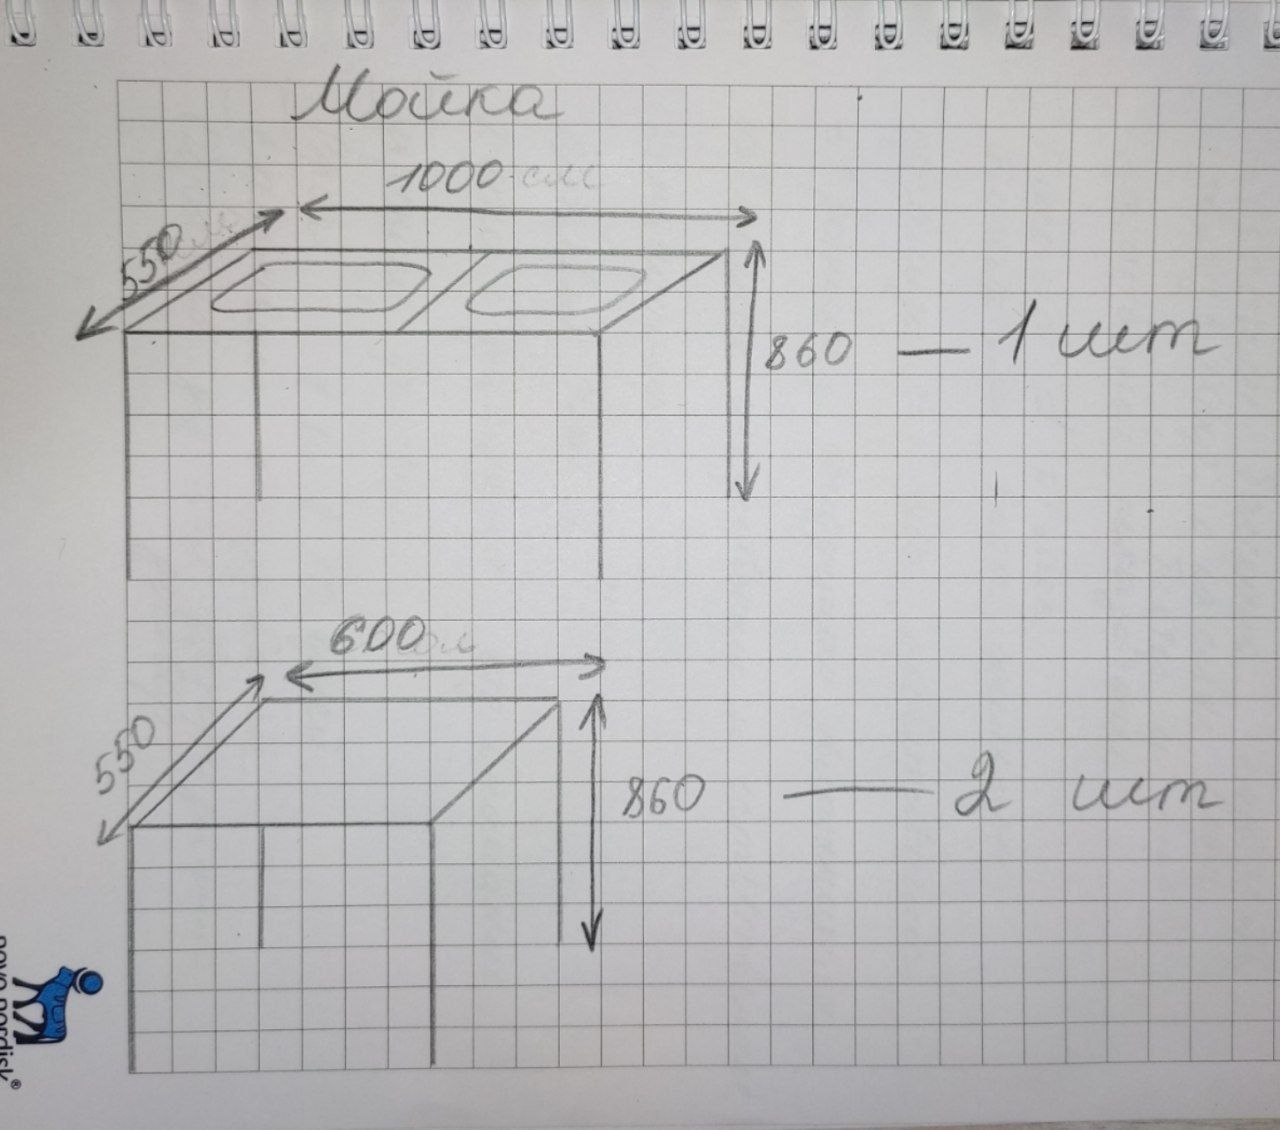 Мойка
1000 см
550
860 — 1 шт
600 см
550
860 — 2 шт
novo nordisk®